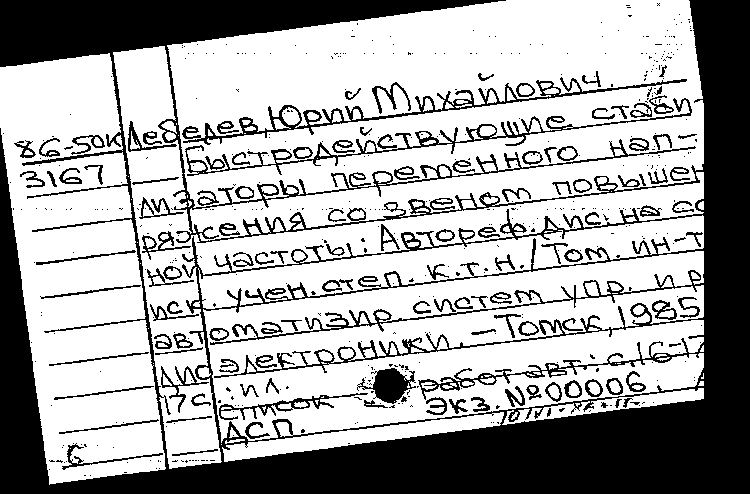 86-50к Лебедев, Юрий Михайлович.
3167 Быстродействующие стаби-
лизаторы переменного нап-
ряжения со звеном повышен
ной частоты: Автореф. дис. на со
иск. учен. степ. к.т.н. / Том. ин-т
автоматизир. систем упр. и р
диоэлектроники. — Томск, 1985
17с. : ил.
список работ авт.: с. 16-17
ДСП. Экз. №00006.
б